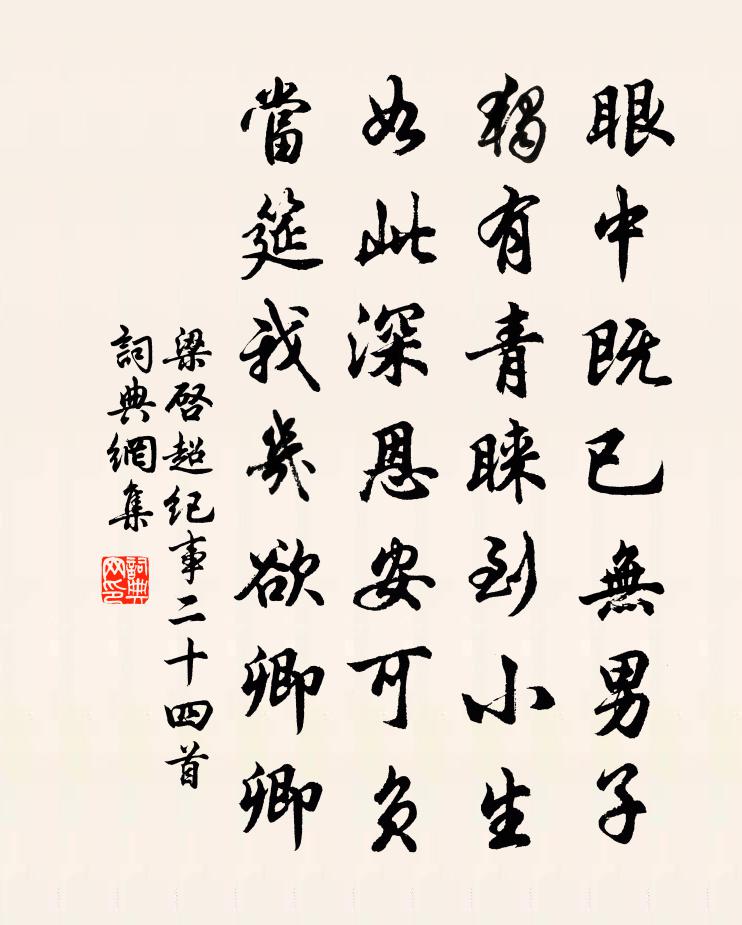 眼中既已無男子
獨有青睞到小生
如此深恩安可負
當筵我幾欲卿卿
梁啓超紀事二十四首
詞典網集
詞典网印